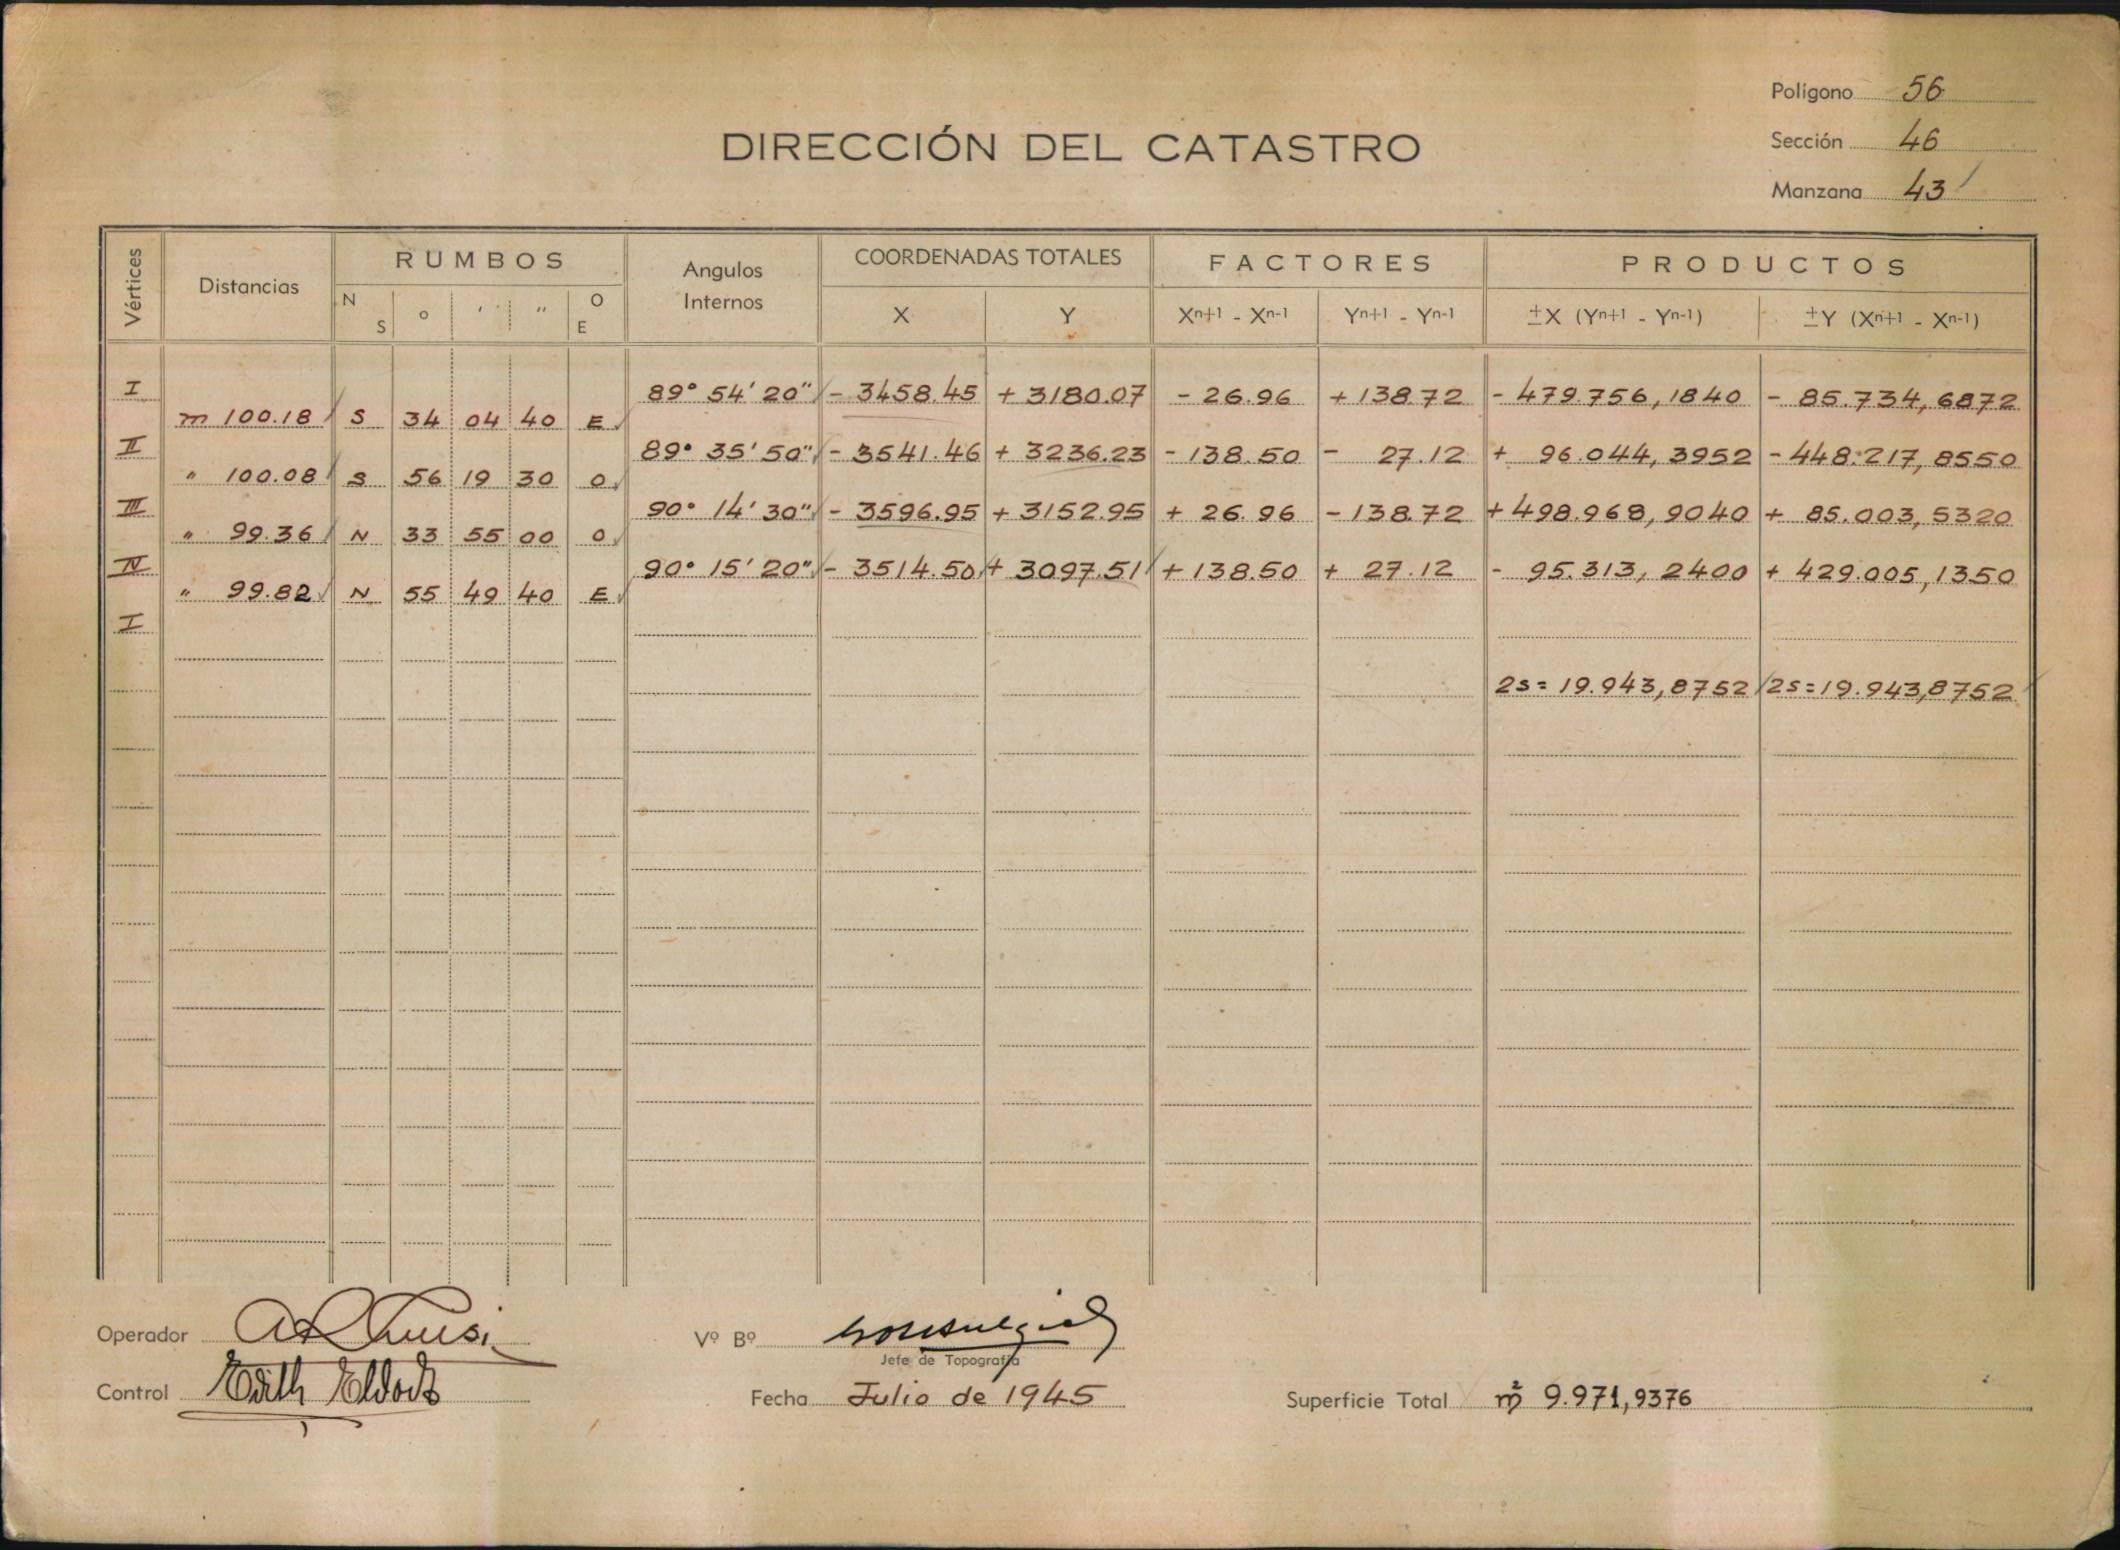 Polígono 56
Sección 46
Manzana 43
DIRECCIÓN DEL CATASTRO
Vértices Distancias RUMBOS Angulos Internos COORDENADAS TOTALES FACTORES PRODUCTOS
N S o ' " O E X Y Xn+1 - Xn-1 Yn+1 - Yn-1 ±X (Yn+1 - Yn-1) ±Y (Xn+1 - Xn-1)
I 89° 54' 20" - 3458.45 + 3180.07 - 26.96 + 138.72 - 479.756,1840 - 85.734,6872
m 100.18 S 34 04 40 E
II 89° 35' 50" - 3541.46 + 3236.23 - 138.50 - 27.12 + 96.044,3952 - 448.217,8550
" 100.08 S 56 19 30 O
III 90° 14' 30" - 3596.95 + 3152.95 + 26.96 - 138.72 + 498.968,9040 + 85.003,5320
" 99.36 N 33 55 00 O
IV 90° 15' 20" - 3514.50 + 3097.51 + 138.50 + 27.12 - 95.313,2400 + 429.005,1350
" 99.82 N 55 49 40 E
I
2s = 19.943,8752 2s = 19.943,8752
Operador
Vº Bº
Jefe de Topografía
Control Edith
Fecha Julio de 1945
Superficie Total m² 9.971,9376